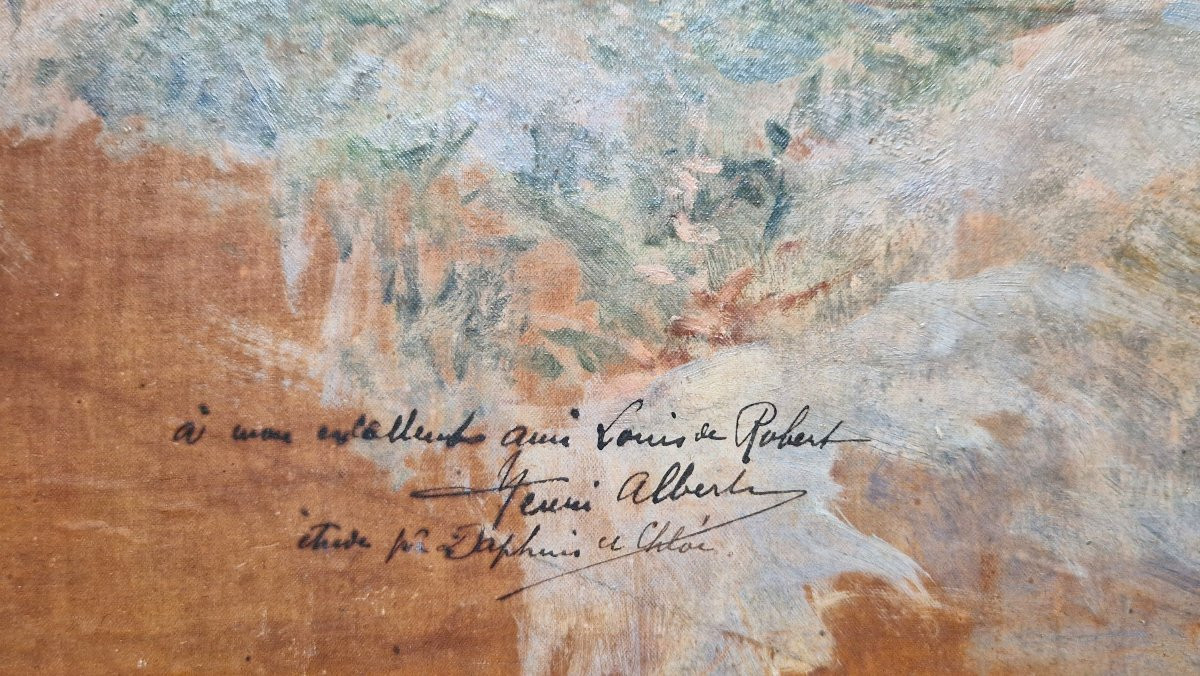 à mon excellent ami Louis de Robert
Henri Albert
étude pr Daphnis et Chloé.